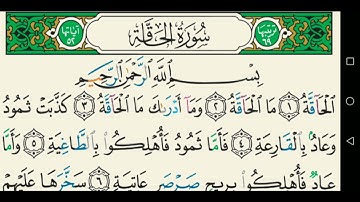 ترتيبها ٦٩
سُورَةُ الحَاقَّةِ
آياتها ٥٢
بِسْمِ اللَّهِ الرَّحْمَٰنِ الرَّحِيمِ
الْحَاقَّةُ ١ مَا الْحَاقَّةُ ٢ وَمَا أَدْرَاكَ مَا الْحَاقَّةُ ٣ كَذَّبَتْ ثَمُودُ
وَعَادٌ بِالْقَارِعَةِ ٤ فَأَمَّا ثَمُودُ فَأُهْلِكُوا بِالطَّاغِيَةِ ٥ وَأَمَّا
عَادٌ فَأُهْلِكُوا بِرِيحٍ صَرْصَرٍ عَاتِيَةٍ ٦ سَخَّرَهَا عَلَيْهِمْ